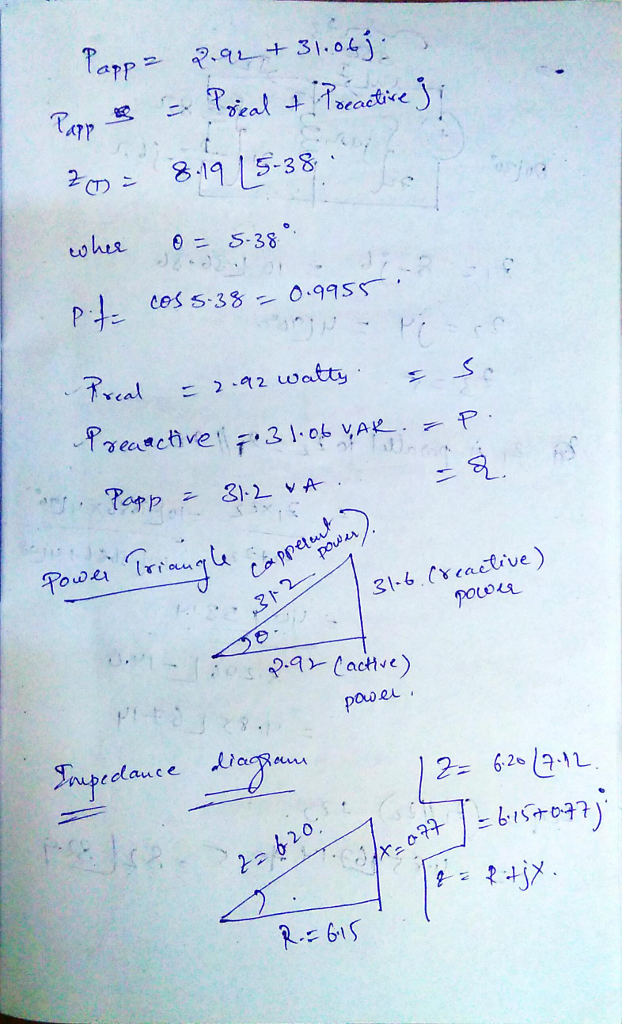 Papp = 2.92 + 31.06j.
Papp = Preal + Preactive j
Z(T) = 8.19 ⌊5.38.
whee θ = 5.38°
P.f = cos 5.38 = 0.9955.
Preal = 2.92 watts. = S
Preactive = 31.06 VAR. = P.
Papp = 31.2 VA. = Q.
Power Triangle
(apperent power).
31.2
31.6 (reactive) power
θ.
2.92 (active) power.
Impedance diagram
Z = 6.20 ⌊7.12
= 6.15+0.77j
Z = R+jX.
Z = 6.20.
X = 0.77
R = 6.15